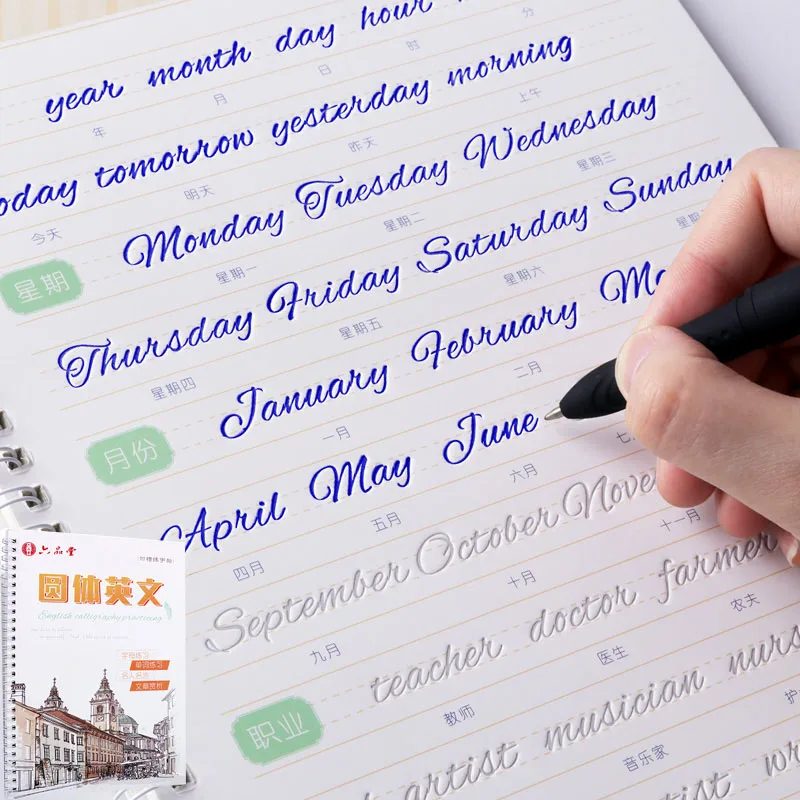 year month day hour
年 月 日 时 分
today tomorrow yesterday morning
今天 明天 昨天 上午
星期 Monday Tuesday Wednesday
星期一 星期二 星期三
Thursday Friday Saturday Sunday
星期四 星期五 星期六 星期
月份 January February Ma
一月 二月
April May June
四月 五月 六月 七
September October Nove
九月 十月 十一月
职业 teacher doctor farmer
教师 医生 农夫
artist musician nurs
音乐家 护
tist wr
六品堂
圆体英文
English calligraphy practicing
字母练习
单词练习
名人名言
文章赏析